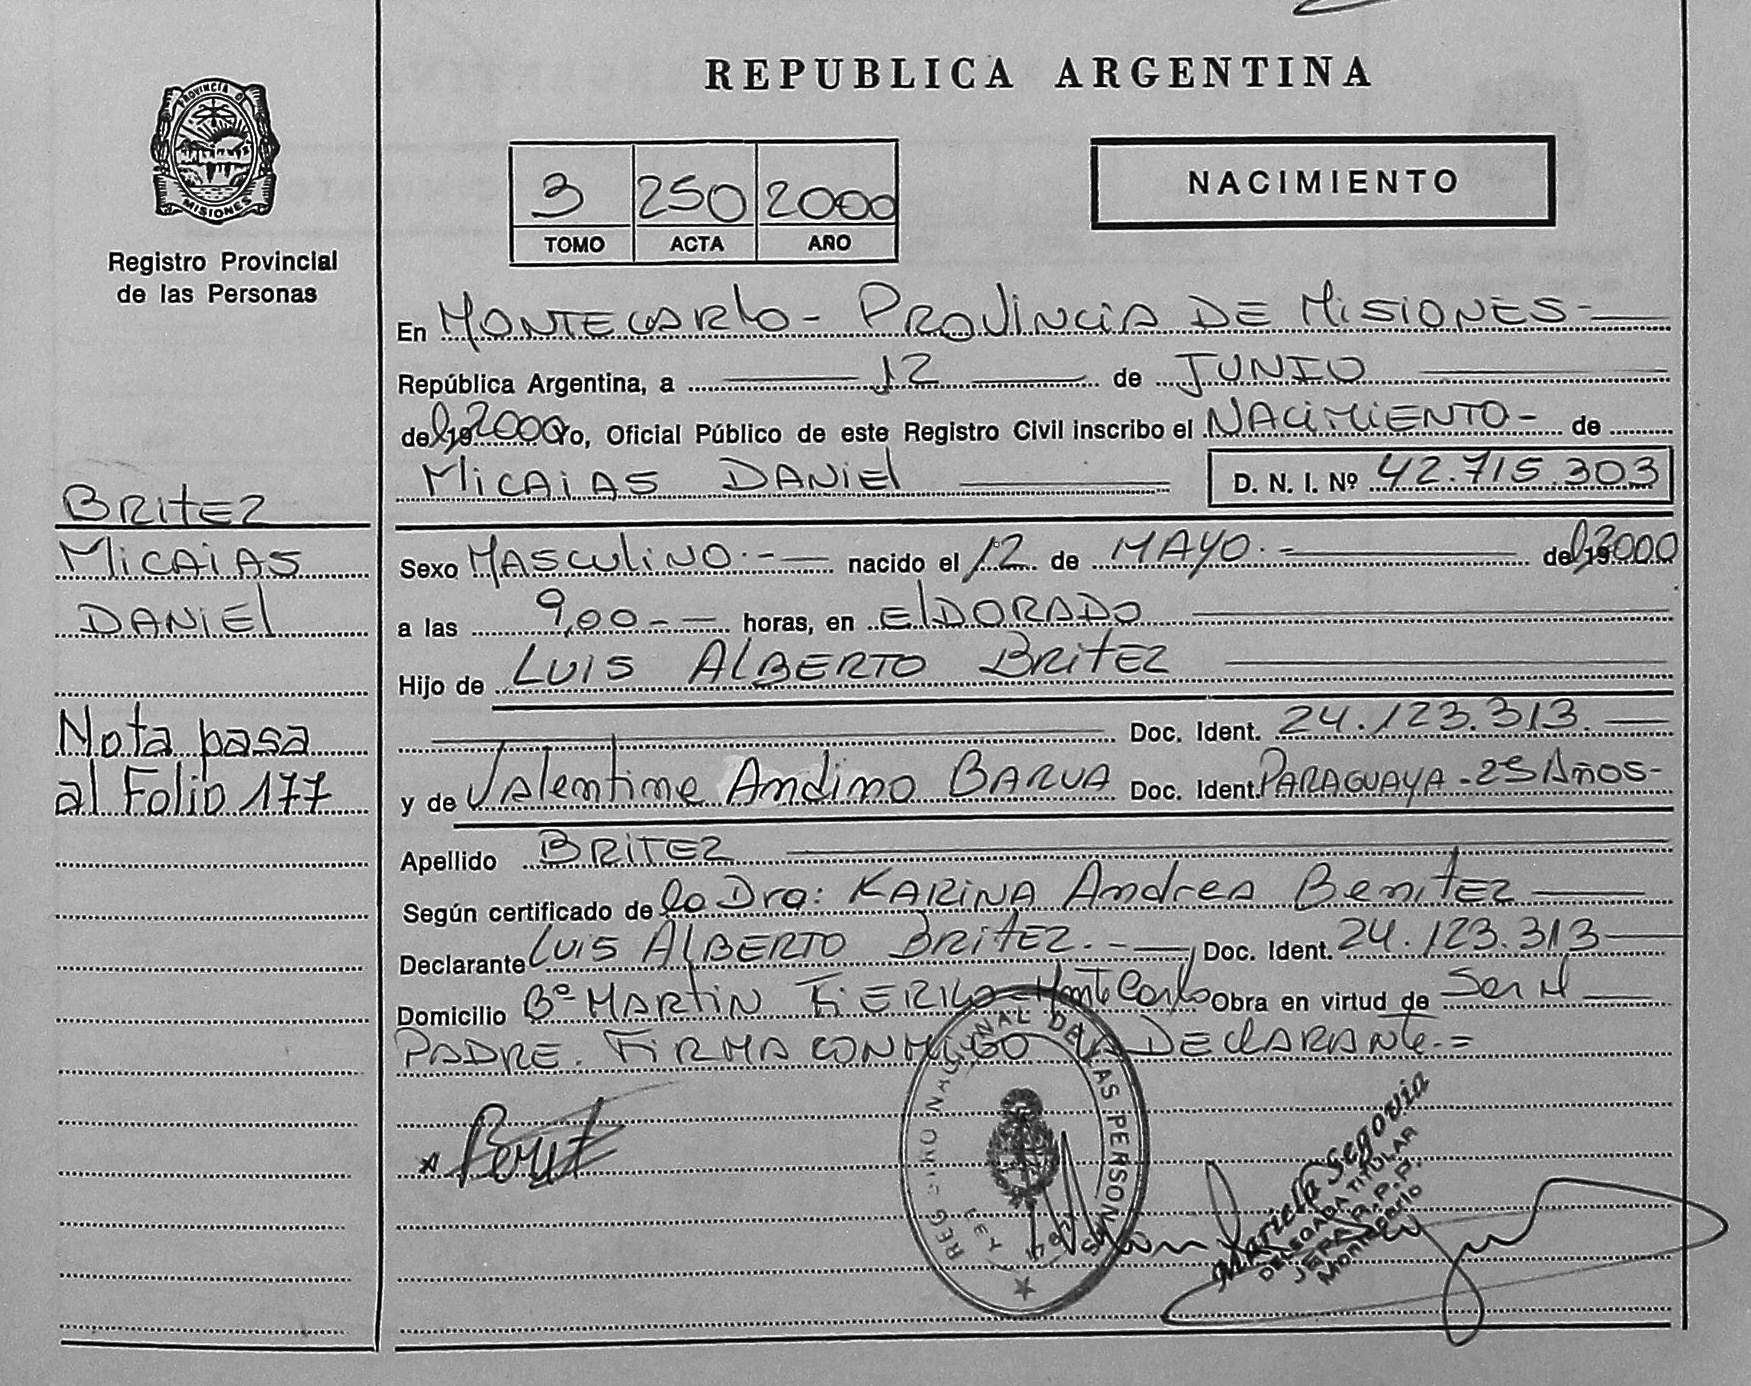 REPUBLICA ARGENTINA
PROVINCIA DE
MISIONES
Registro Provincial
de las Personas
3 250 2000
TOMO ACTA AÑO
NACIMIENTO
En MONTECARlo - PROVINCIA DE MISIONES -
República Argentina, a 12 de JUNIO
del 2000 yo, Oficial Público de este Registro Civil inscribo el NACIMIENTO - de
MICAIAS DANIEl D. N. I. Nº 42.715.303
BRITEZ
MICAIAS
DANIEl
Nota pasa
al Folio 177
Sexo MASCUliNO.- nacido el 12 de MAYO.- del 2000
a las 9,00 - horas, en ElDORADO
Hijo de LUIS ALBERTO BRITEZ
Doc. Ident. 24.123.313.
y de Valentine Andino BARUA Doc. Ident. PARAGUAYA - 25 Años -
Apellido BRITEZ
Según certificado de la Dra: KARINA Andrea Benitez
Declarante LUIS ALBERTO BRITEZ.- Doc. Ident. 24.123.313
Domicilio Bº MARTIN FIERRO - Monte Carlo Obra en virtud de Ser el
PADRE. FIRMA CONMIGO DECLARANTE.=
REGISTRO NACIONAL DE LAS PERSONAS
Mariela Segovia
DELEGADA TITULAR
JEFA R.P.P.
Montecarlo